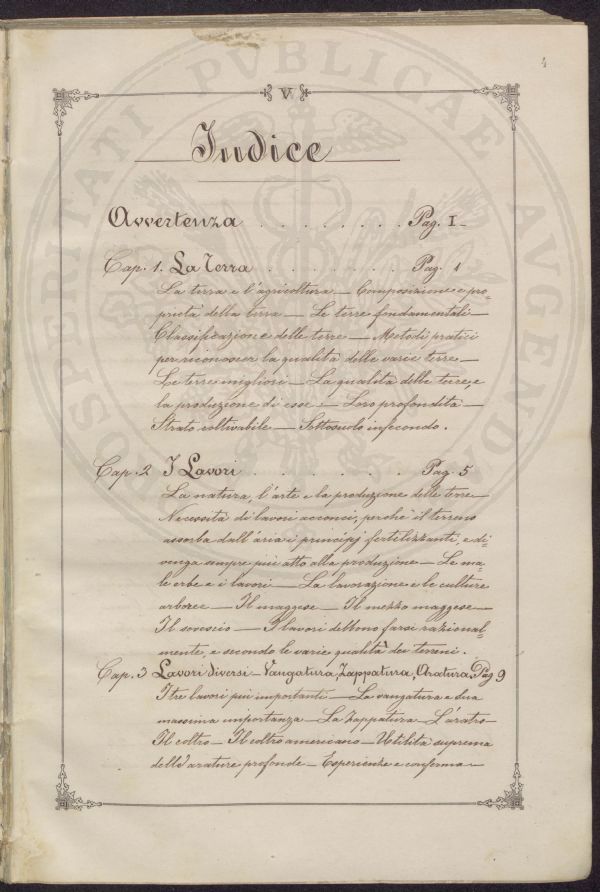 4
V
Indice
Avvertenza . . . . . . . . Pag. I
Cap. 1. La Terra . . . . . . . . Pag. 1
La terra e l'agricoltura — Composizione e pro-
prietà della terra — Le terre fondamentali —
Classificazione delle terre — Metodi pratici
per riconoscer la qualità delle varie terre —
Le terre migliori — La qualità delle terre, e
la produzione di esse — Loro profondità —
Strato coltivabile — Sottosuolo infecondo.
Cap. 2 I Lavori . . . . . . . Pag. 5
La natura, l'arte e la produzione delle terre —
Necessità di lavori acconci, perchè il terreno
assorba dall'aria i principj fertilizzanti, e di-
venga sempre più atto alla produzione — Le ma-
le erbe e i lavori — La lavorazione e le culture
arboree — Il maggese — Il mezzo maggese —
Il sovescio — I lavori debbono farsi razional-
mente, e secondo le varie qualità dei terreni.
Cap. 3 Lavori diversi — Vangatura, Zappatura, Aratura. Pag 9
I tre lavori più importanti — La vangatura e sua
massima importanza — La Zappatura — L'aratro —
Il coltro — Il coltro americano — Utilità suprema
delle arature profonde — Esperienze e conferma —
SOSPEDITATI PVBLICAE AVGENDAE